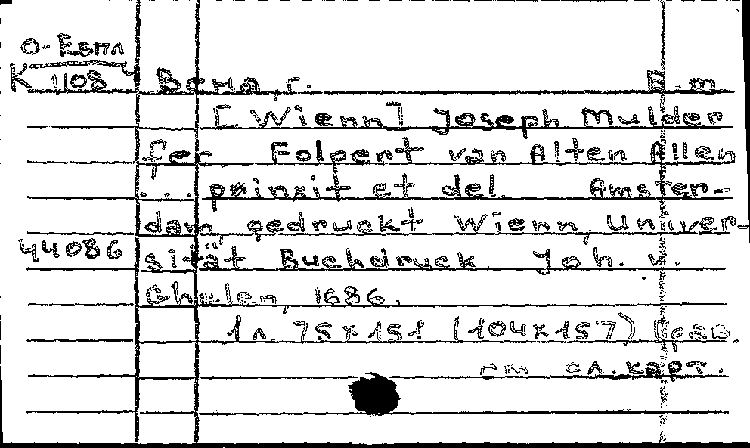 О-Евпл
К 1108 Вена, г.
[Wienn] Joseph Mulder
fec Folpert van Alten Allen
... pinxit et del. Amster-
dam, gedruckt Wienn, Univer-
44086 sität Buchdruck Joh. v.
Ghelen, 1686.
1 л. 75x151 (104x157) грав.
см сл. карт.